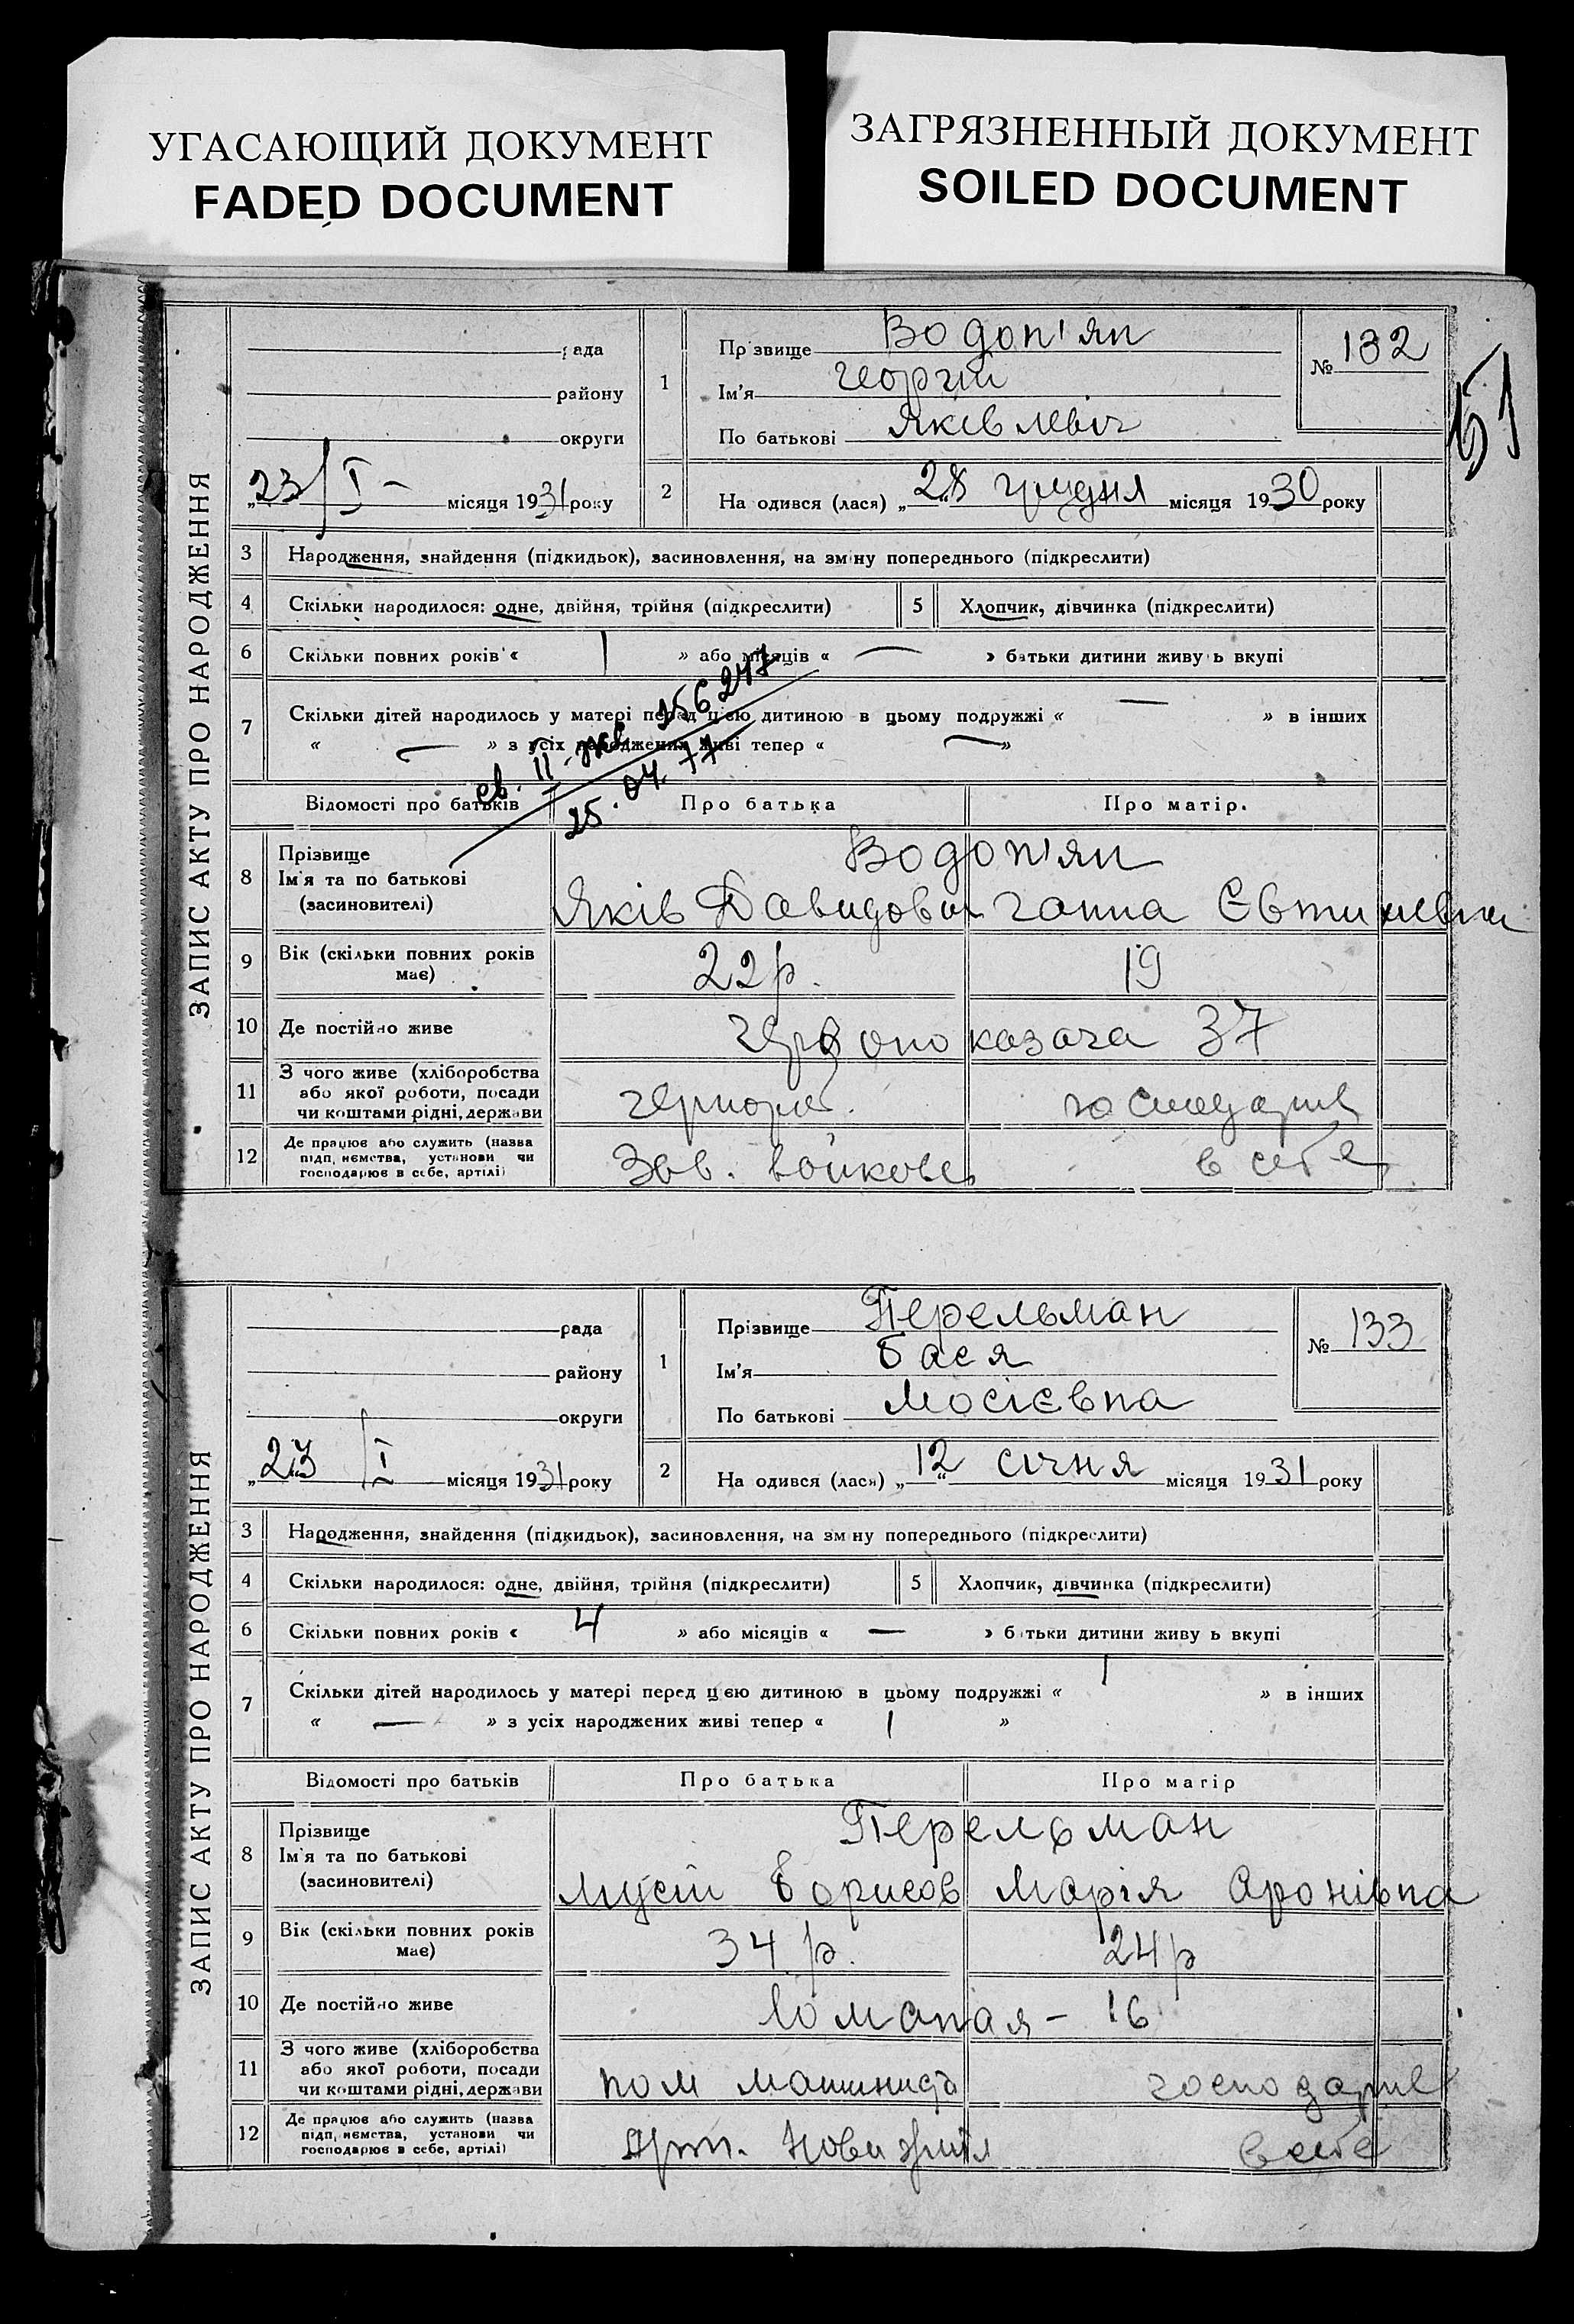 УГАСАЮЩИЙ ДОКУМЕНТ
FADED DOCUMENT
ЗАГРЯЗНЕННЫЙ ДОКУМЕНТ
SOILED DOCUMENT
51
ЗАПИС АКТУ ПРО НАРОДЖЕННЯ
рада
району
округи
„23/I- місяця 1931 року
1 Прізвище Водоп'ян
Ім'я Георгій
По батькові Яківлевіч
№ 132
2 На одився (лася) „28" грудня місяця 1930 року
3 Народження, знайдення (підкидьок), засиновлення, на зміну попереднього (підкреслити)
4 Скільки народилося: одне, двійня, трійня (підкреслити) 5 Хлопчик, дівчинка (підкреслити)
6 Скільки повних років « 1 » або місяців « — » батьки дитини живуть вкупі
7 Скільки дітей народилось у матері перед цією дитиною в цьому подружжі « — » в інших
« — » з усіх народжених живі тепер « — »
св. II-жв 156247
25.04.77
Відомості про батьків Про батька Про матір.
8 Прізвище Ім'я та по батькові (засновителі) Водоп'ян
Яків Давидович Ганна Євтихіевна
9 Вік (скільки повних років має) 22 р. 19
10 Де постійно живе Червоно казача 37
11 З чого живе (хліборобства або якої роботи, посади чи коштами рідні, держави чернороб. господарює
12 Де працює або служить (назва підп, иємства, установи чи господарює в себе, артілі) Зав. Войкова в себе
ЗАПИС АКТУ ПРО НАРОДЖЕННЯ
рада
району
округи
„23" /I місяця 1931 року
1 Прізвище Перельман
Ім'я Бася
По батькові Мосієвна
№ 133
2 На одився (лася) „12" січня місяця 1931 року
3 Народження, знайдення (підкидьок), засиновлення, на зміну попереднього (підкреслити)
4 Скільки народилося: одне, двійня, трійня (підкреслити) 5 Хлопчик, дівчинка (підкреслити)
6 Скільки повних років « 4 » або місяців « — » батьки дитини живуть вкупі
7 Скільки дітей народилось у матері перед цією дитиною в цьому подружжі « 1 » в інших
« — » з усіх народжених живі тепер « 1 »
Відомості про батьків Про батька Про матір
8 Прізвище Ім'я та по батькові (засиновителі) Перельман
Борисов Марія Аронівна
9 Вік (скільки повних років має) 34 р. 24 р
10 Де постійно живе 16
11 З чого живе (хліборобства або якої роботи, посади чи коштами рідні, держави пом машиніста господарює
12 Де працює або служить (назва підп, иємства, установи чи господарює в себе, артілі) Арт. в себе